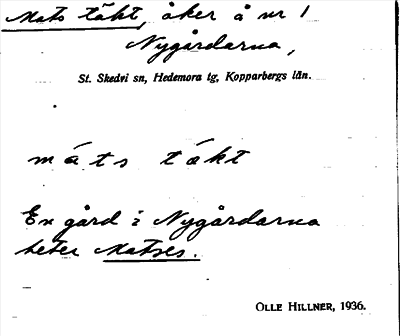 Mats täkt, åker å nr 1
Nygårdarna,
St. Skedvi sn, Hedemora tg, Kopparbergs län.
máts tákt
En gård i Nygårdarna
heter Matses.
OLLE HILLNER, 1936.